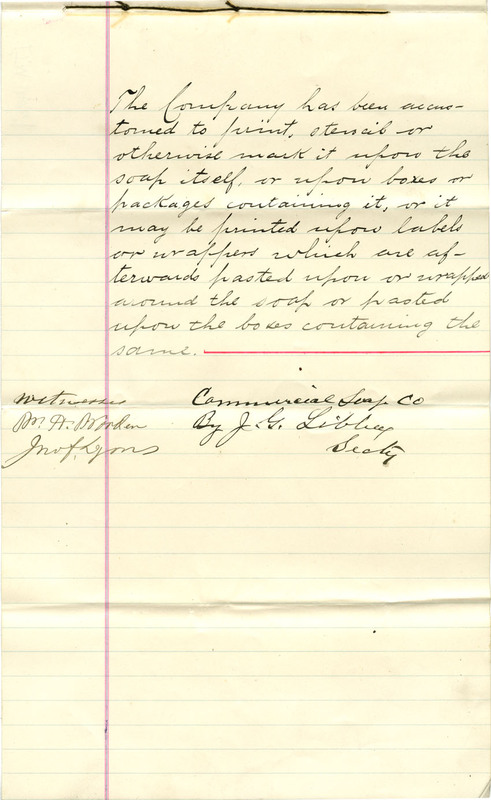 The Company has been accus-
tomed to print, stencil or
otherwise mark it upon the
soap itself, or upon boxes or
packages containing it, or it
may be printed upon labels
or wrappers which are af-
terwards pasted upon or wrapped
around the soap or pasted
upon the boxes containing the
same.
Witnesses
Commercial Soap Co
By J. G. Libbey
Secty
Jno. F. Lyons